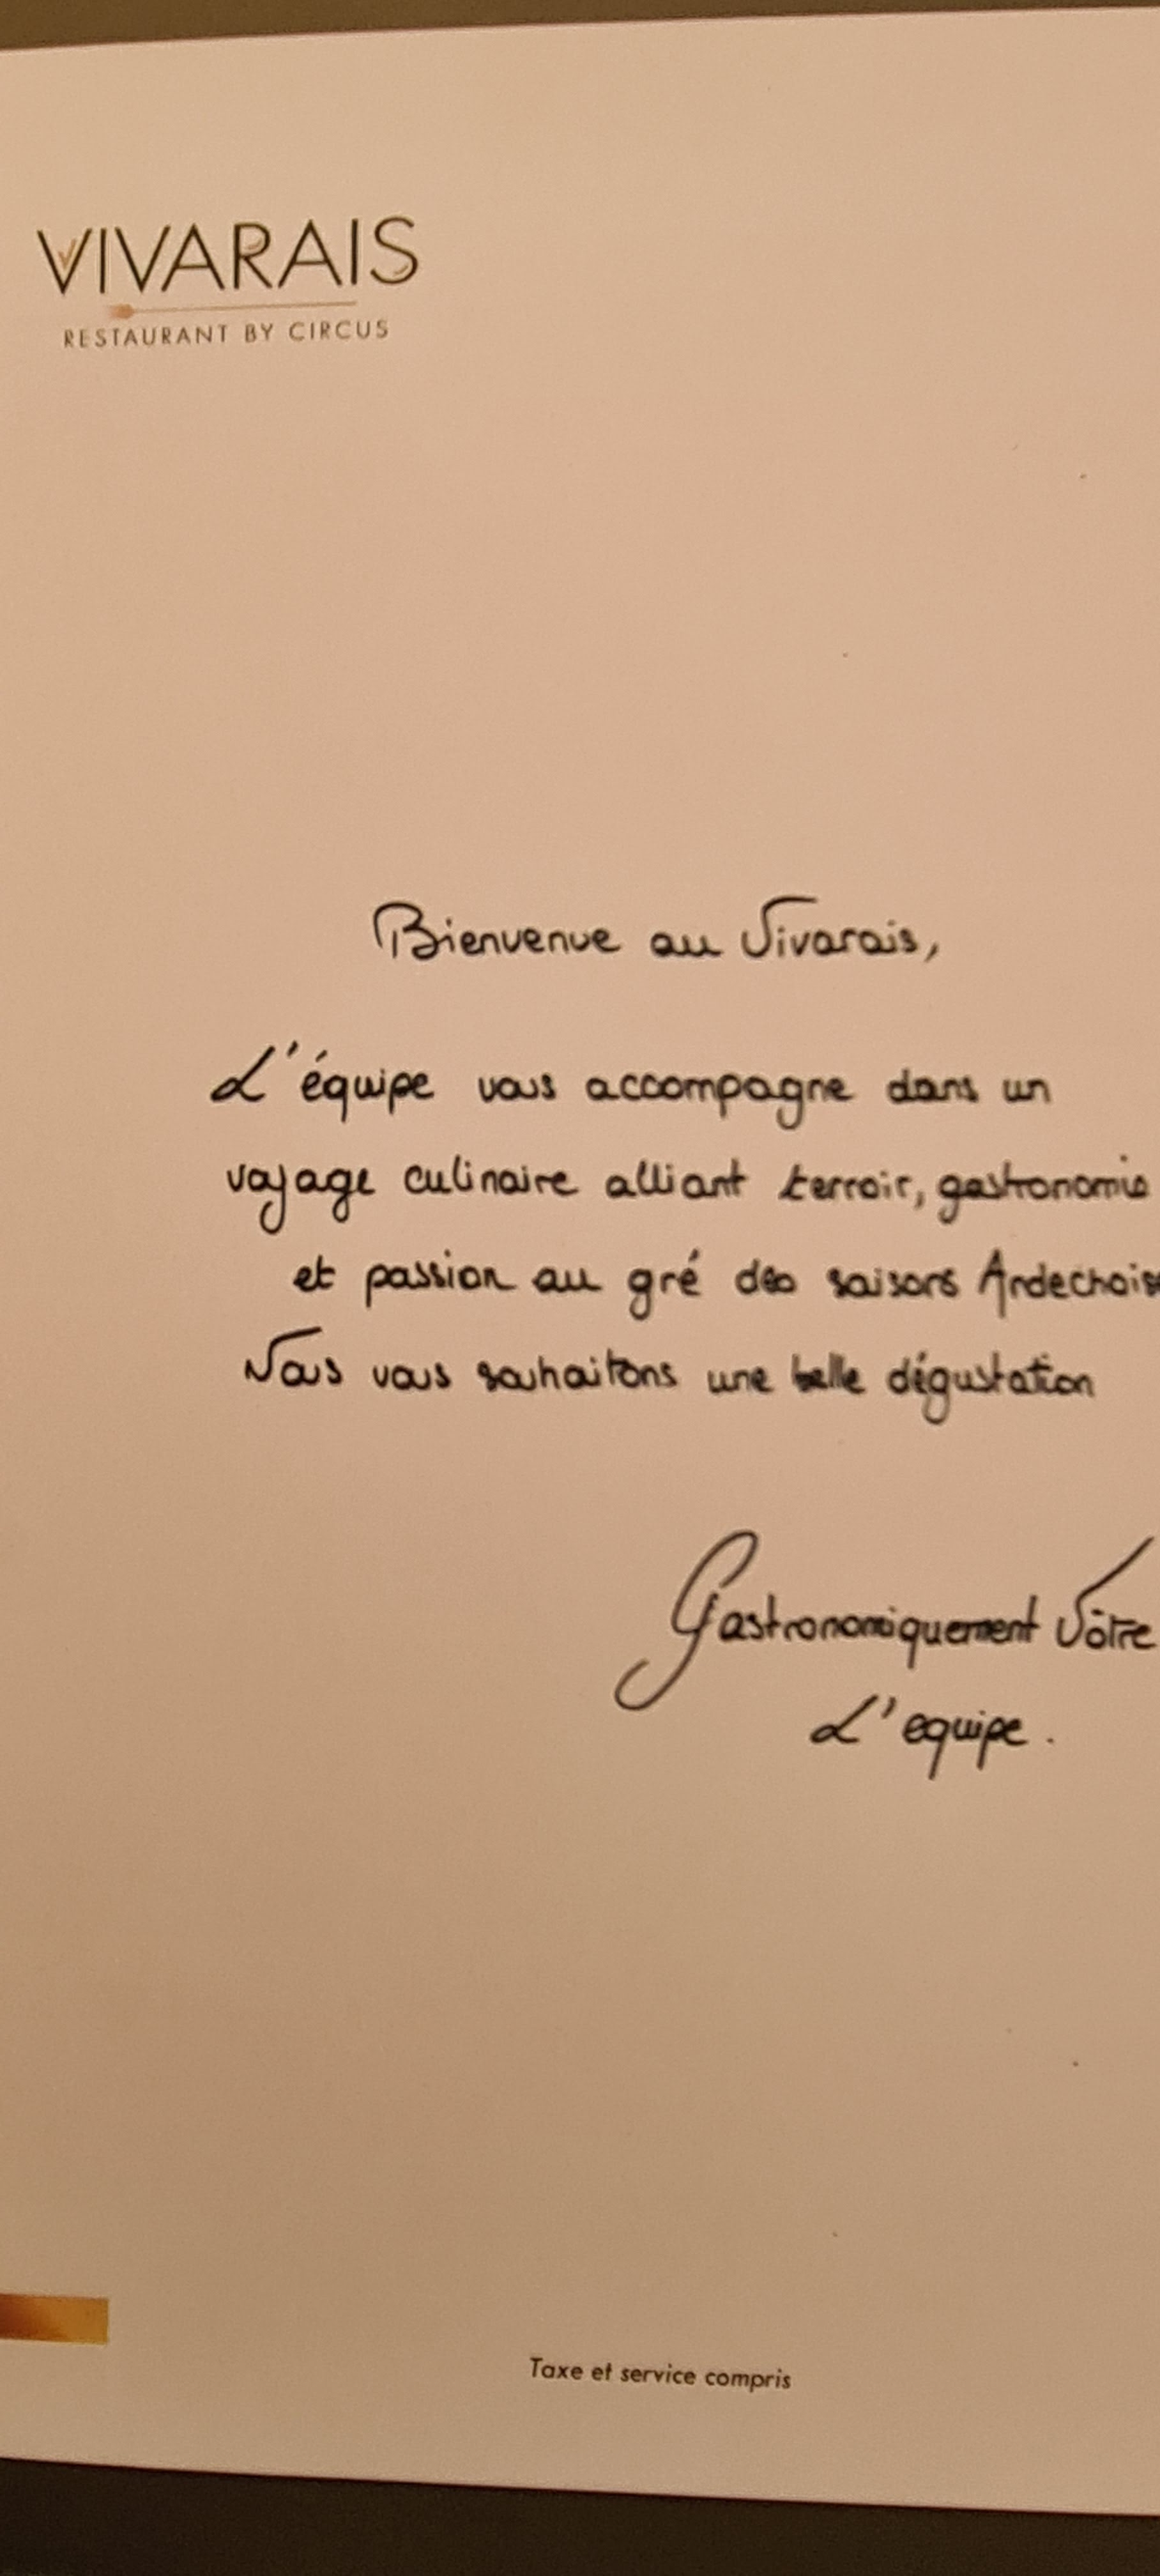 VIVARAIS
RESTAURANT BY CIRCUS
Bienvenue au Vivarais,
L'équipe vous accompagne dans un
voyage culinaire alliant terroir, gastronomie
et passion au gré des saisons
Nous vous souhaitons une belle dégustation
Gastronomiquement Vôtre
L'equipe.
Taxe et service compris